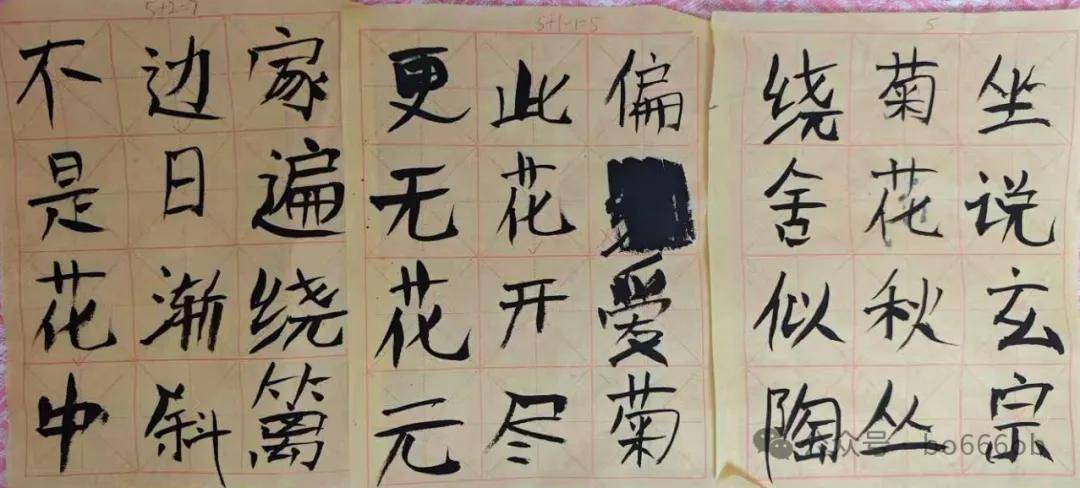 5
坐说玄宗
菊花秋丛
绕舍似陶
5+2=7
家遍绕篱
边日渐斜
不是花中
5+1-1=5
偏爱菊
此花开尽
更无花元
公众号